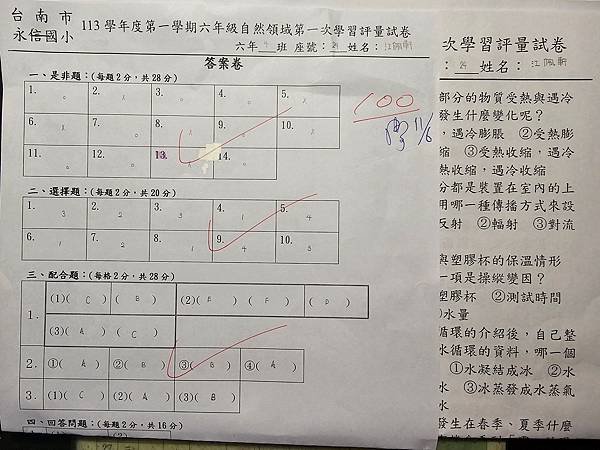 台南市
永信國小
113學年度第一學期六年級自然領域第一次學習評量試卷
六年 班 座號： 姓名：江佩軒
答案卷
一、是非題：(每題2分，共28分)
1. ○ 2. X 3. ○ 4. ○ 5. X
6. X 7. ○ 8. X 9. ○ 10. X
11. ○ 12. ○ 13. 14.
100
11/6
二、選擇題：(每題2分，共20分)
1. 3 2. 2 3. 3 4. 1 5. 4
6. 1 7. 2 8. 1 9. 4 10. 3
三、配合題：(每格2分，共28分)
1. (1)( C ) ( B ) (2)( E ) ( F ) ( D )
(3)( A ) ( C )
2. ①( A ) ②( B ) ③( B ) ④( A )
3. (1)( C ) (2)( A ) (3)( B )
四、回答問題：(每題2分，共16分)
次學習評量試卷
： 姓名：江佩軒
部分的物質受熱與遇冷
發生什麼變化呢？
，遇冷膨脹 ②受熱膨
縮 ③受熱收縮，遇冷
熱收縮，遇冷收縮
分都是裝置在室內的上
用哪一種傳播方式來設
反射 ②輻射 ③對流
與塑膠杯的保溫情形
一項是操縱變因？
塑膠杯 ②測試時間
水量
循環的介紹後，自己整
水循環的資料，哪一個
①水凝結成冰 ②水
水 ③冰蒸發成水蒸氣
水
發生在春季、夏季什麼